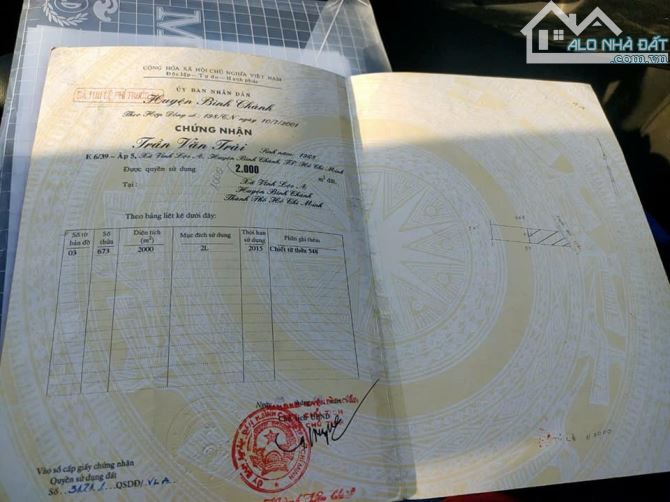 ALO NHÀ ĐẤT
Alonhadat.com.vn
CỘNG HÒA XÃ HỘI CHỦ NGHĨA VIỆT NAM
Độc lập - Tự do - Hạnh phúc
ỦY BAN NHÂN DÂN
Huyện Bình Chánh
Theo Hợp Đồng số : 198/CN ngày 10/7/2001
CHỨNG NHẬN
Trần Văn Trài Sinh năm : 1965
E 6/39 – Ấp 5, Xã Vĩnh Lộc A, Huyện Bình Chánh, TP. Hồ Chí Minh
Được quyền sử dụng 2.000 m² đất
Tại : Xã Vĩnh Lộc A,
Huyện Bình Chánh
Thành Phố Hồ Chí Minh
Theo bảng liệt kê dưới đây:
Số tờ bản đồ Số thửa Diện tích (m²) Mục đích sử dụng Thời hạn sử dụng Phần ghi thêm
03 673 2000 2L 2015 Chiết từ thửa 548
Ngày
Vào sổ cấp giấy chứng nhận
Quyền sử dụng đất
Số QSDĐ/ VLA